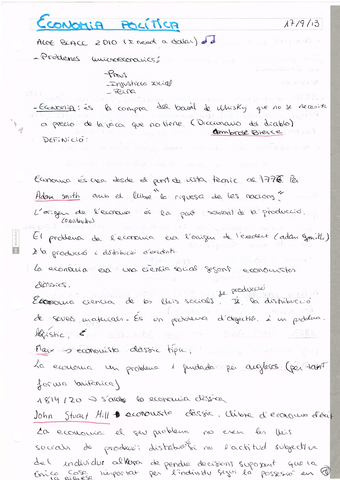 ECONOMIA POLÍTICA 17/9/13
ALOE BLACC 2010 (I need a dollar)
- Problemes microeconomics:
- Preus
- Injustícia social
- Feina
- Economia: és la compra del barril de Whisky que no se necesita
a precio de la vaca que no tiene. (Diccionario del diablo)
Ambrose Bierce
Definició:
Economia és crea desde el punt de vista tècnic al 1776 Per
Adam Smith amb el llibre "la riquesa de les nacions".
L'origen de l'economia és la part social de la producció.
El problema de l'economia era l'origen de l'excedent (adam Smith)
la producció i distribució d'excedent
la economia era una ciència social segons economistes
clàssics.
Economia ciencia de les lleis socials de producció la distribució
de béns materials. És un problema d'objectius, i un problema
Marx → economista clàssic típic.
La economia un problema i fundada per anglesos (per tant
forma britànica)
1819/20 → s'acaba la economia clàssica
John Stuart Mill → economista clàssic. Llibre d'economia
La economia el seu problema no eren les lleis
socials de producció distribució si no l'actitud subjectiva
del individu alhora de pendre decisions suposant que la
única cosa important per l'individu segons la possessió en
la riquesa